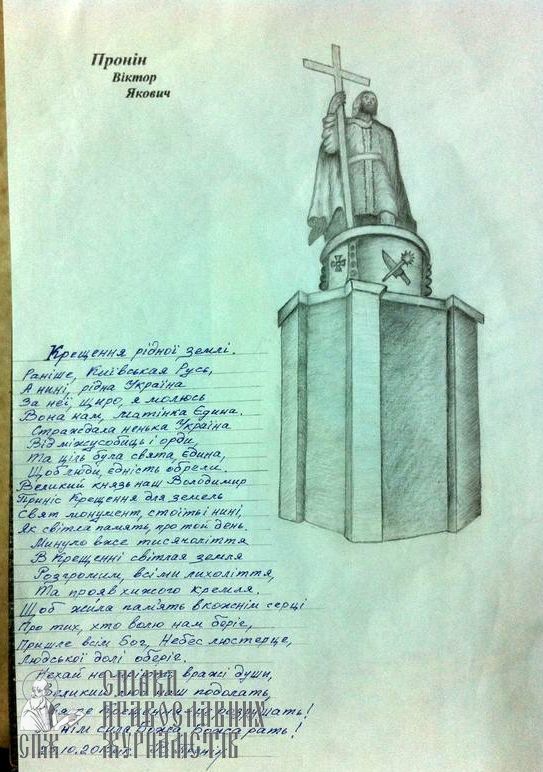 Пронін
Віктор
Якович
Крещення рідної землі.
Раніше, Київськая Русь,
А нині, рідна Україна
За неї, щиро, я молюсь
Вона нам, матінка Єдина.
Страждала ненька Україна
Від міжусобиць і орди,
Та ціль була свята, єдина,
Щоб люди, єдність обрели.
Великий князь наш Володимир
Приніс Крещення для земель
Свят монумент, стоїть і нині,
Як світла память, про той день.
Минуло вже тисячоліття
В Крещенні світлая земля
Розгромим, всі ми лихоліття,
Та прояв хижого Кремля.
Щоб жила пам'ять в кожнім серці
Про тих, хто волю нам беріг,
Пришле всім Бог, Небес люстерце,
Людської долі оберіг.
Нехай не мріють вражі души,
Великий люд наш подолать,
не порушать!
нім сила Божа, Божа рать!
10.20
СПІЛКА
ПРАВОСЛАВНИХ
СПЖ ЖУРНАЛІСТІВ